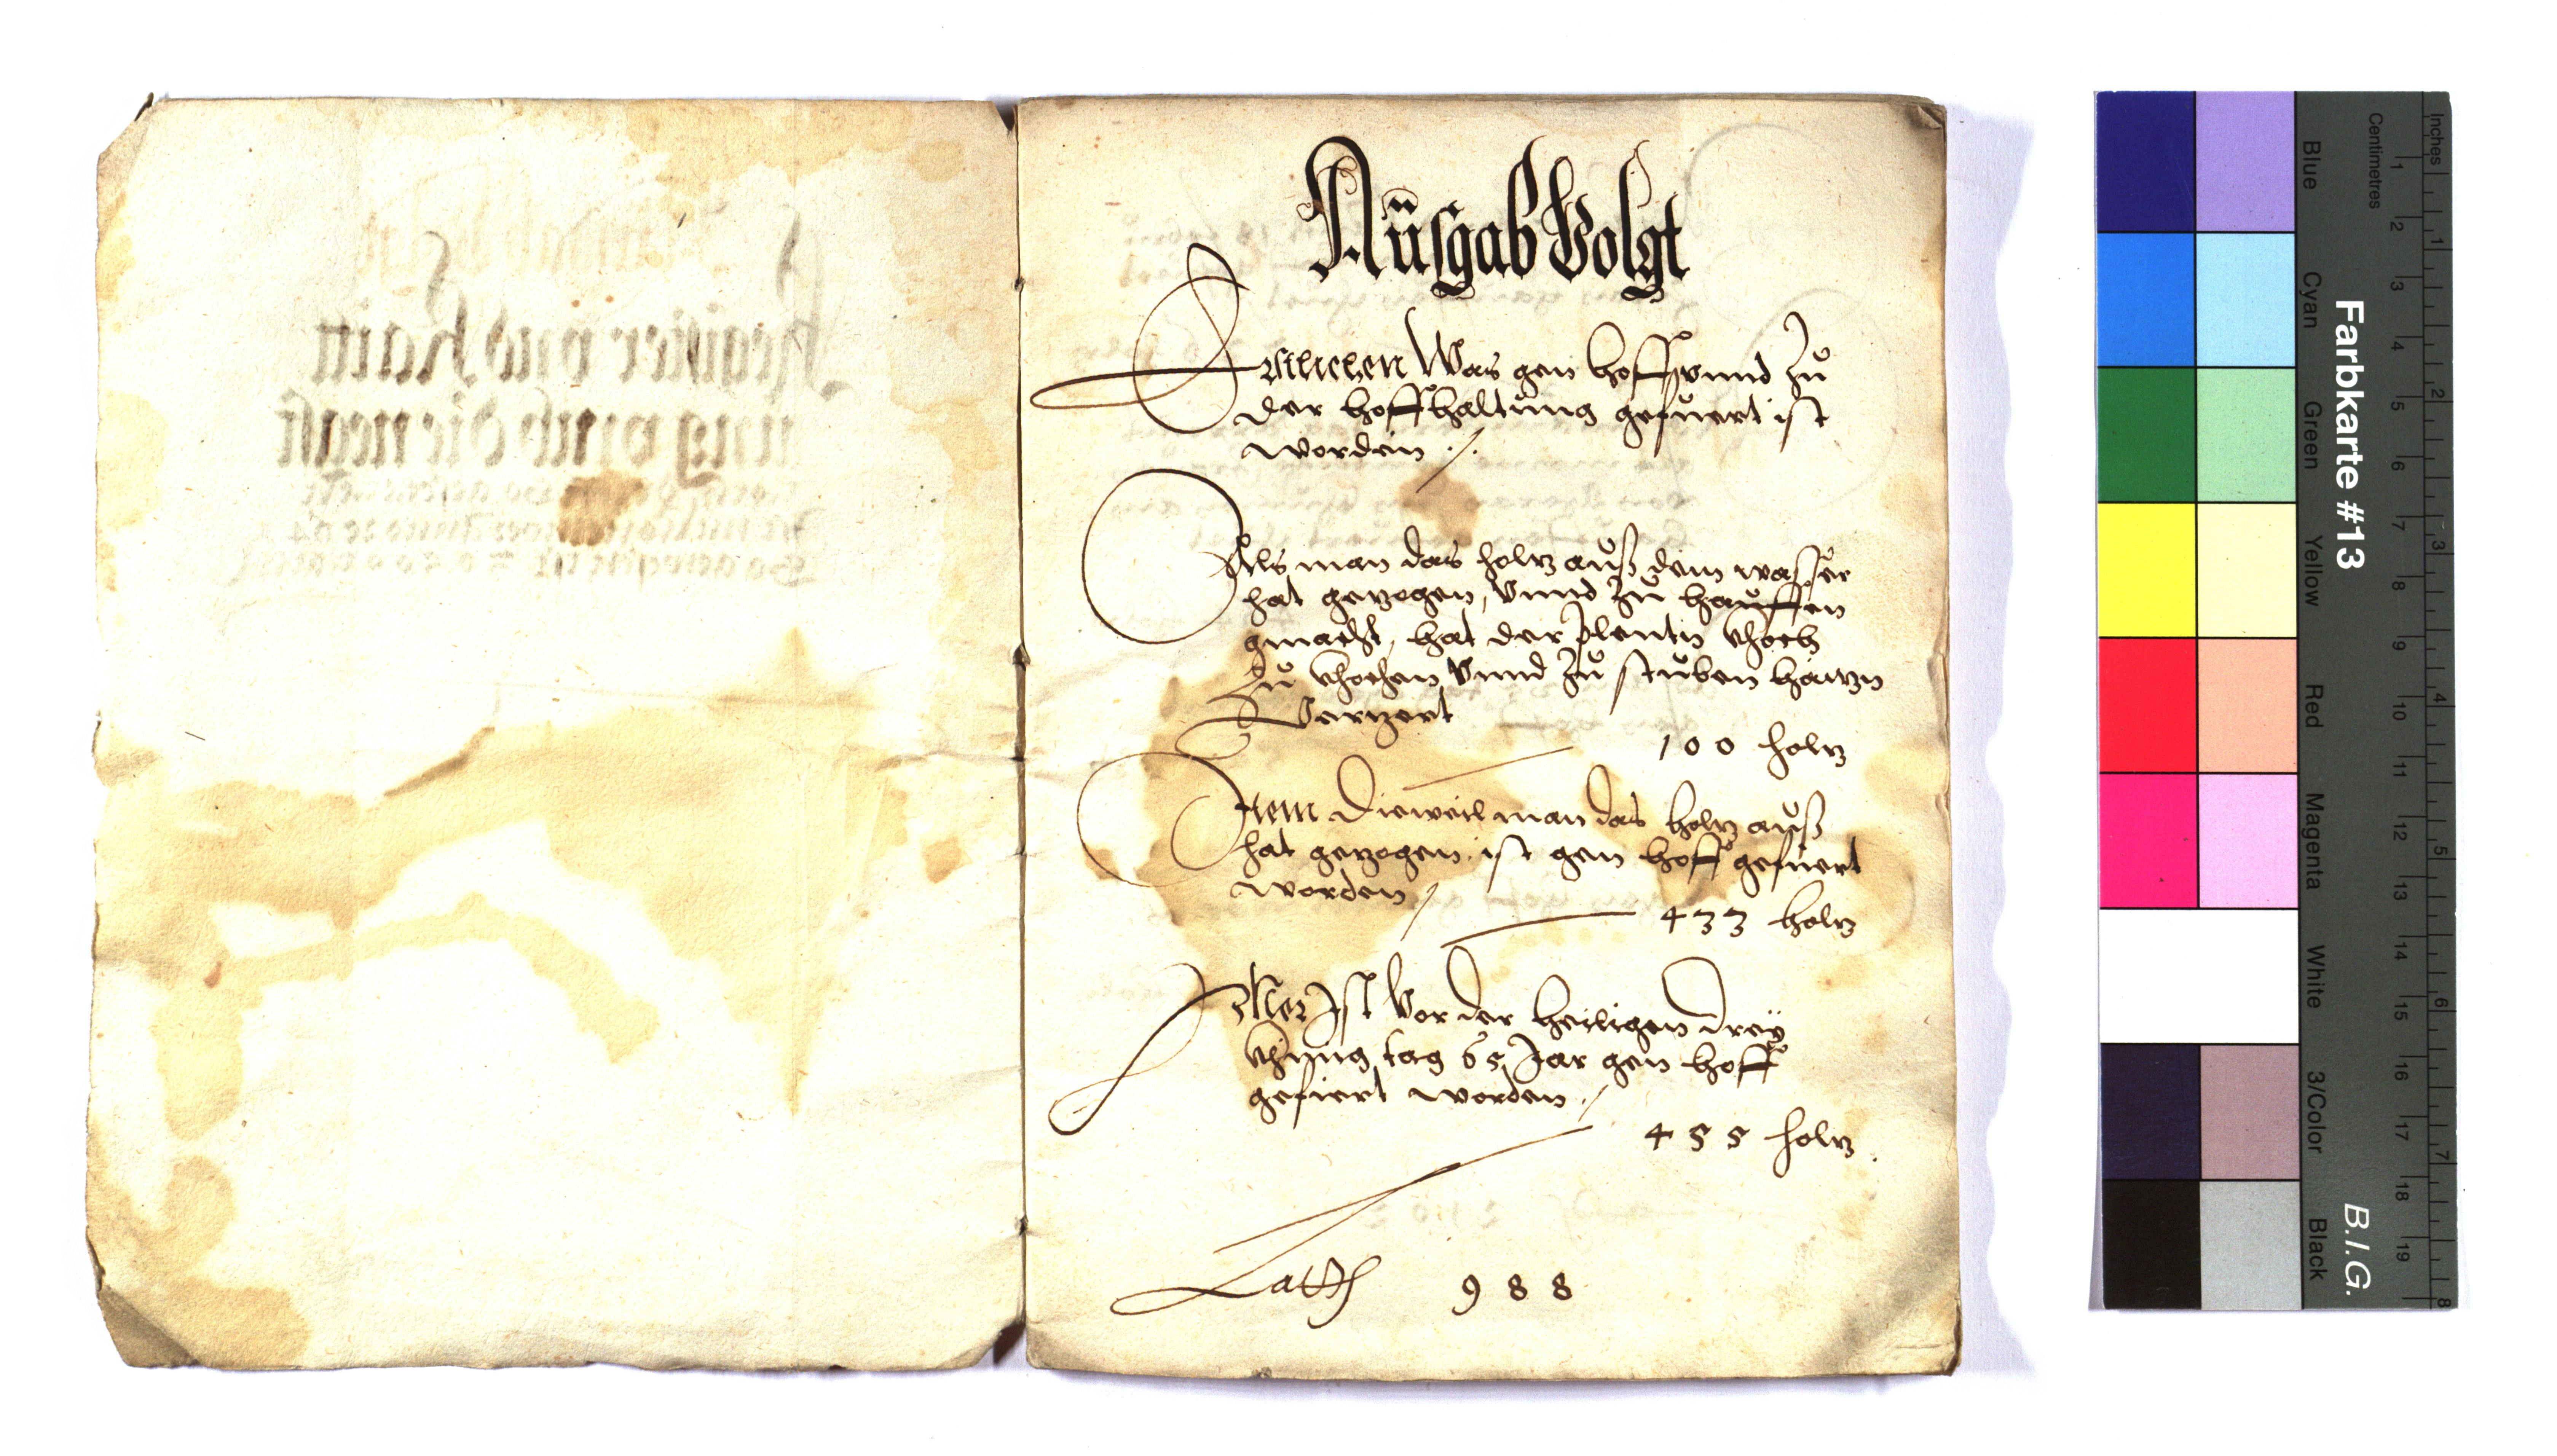 Ausgab Volgt
Erstlichen Was gen hoff vnnd Zů
der hoffhaltůng gefuert ist
worden ./.
Als man das holtz auß dem wasser
hat getzogen, Vnnd Zů hauffen
gmacht, hat der plentn khoch
Zů khochen Vnnd Zů stuben haitzn
Vertzert
100 holtz
Item Dieweil man das holtz auß
hat getzogen ist gen hoff gefuert
worden /
433 holtz
Mer Ist Vor der heiligen Drey
khinig tag 65 Jar gen hoff
gefiert worden ./
455 holtz
Latth 988
Inches
Centimetres
1 2 3 4 5 6 7 8 9 10 11 12 13 14 15 16 17 18 19
1 2 3 4 5 6 7 8
Farbkarte #13
B.I.G.
Blue
Cyan
Green
Yellow
Red
Magenta
White
3/Color
Black